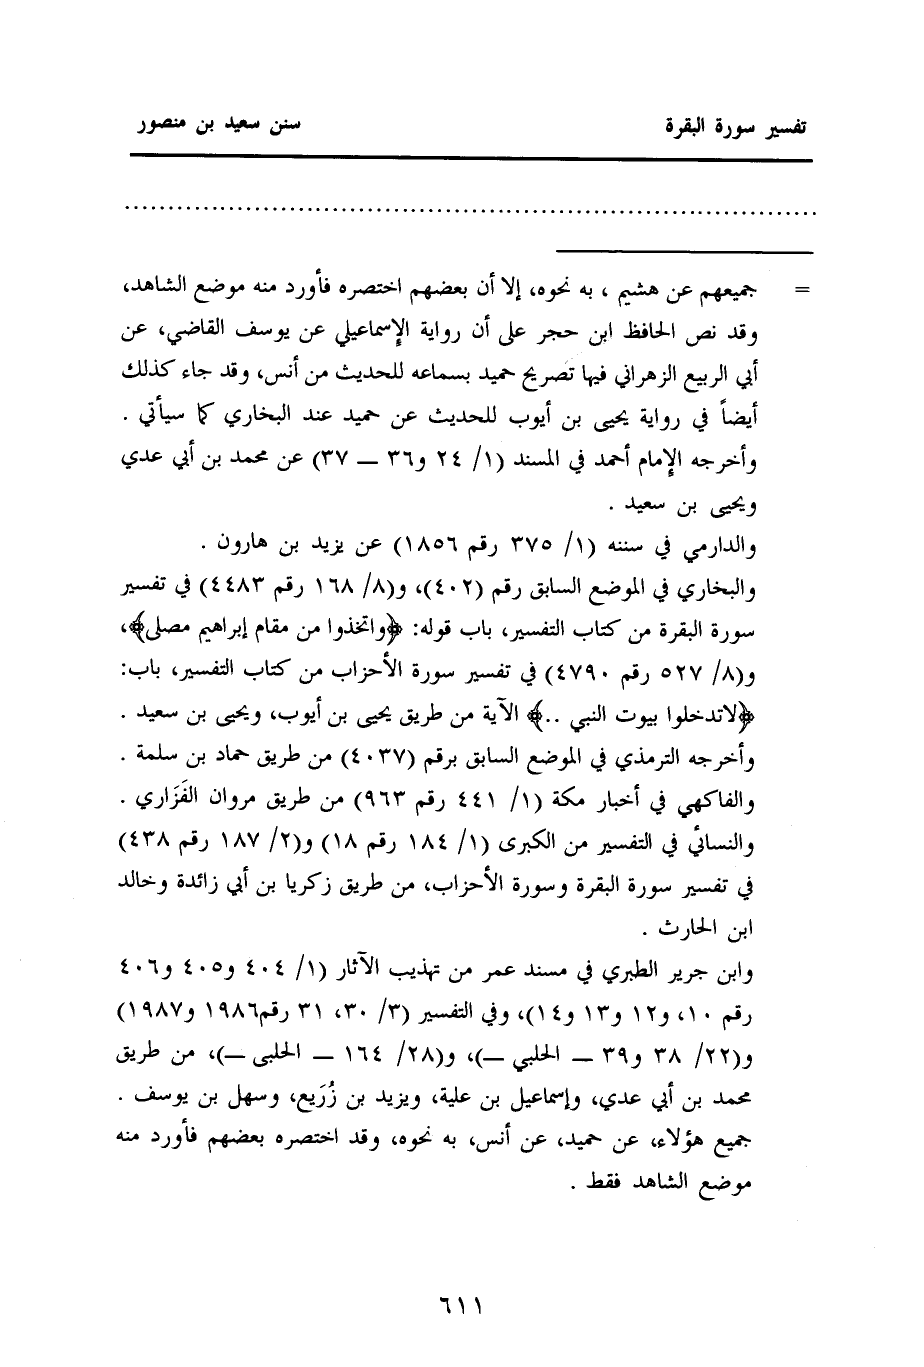 تفسير سورة البقرة سنن سعيد بن منصور
................................................................................
= جميعهم عن هشيم ، به نحوه، إلا أن بعضهم اختصره فأورد منه موضع الشاهد،
وقد نص الحافظ ابن حجر على أن رواية الإسماعيلي عن يوسف القاضي، عن
أبي الربيع الزهراني فيها تصريح حميد بسماعه للحديث من أنس، وقد جاء كذلك
أيضاً في رواية يحيى بن أيوب للحديث عن حميد عند البخاري كما سيأتي .
وأخرجه الإمام أحمد في المسند (١/ ٢٤ و٣٦ ـ ٣٧) عن محمد بن أبي عدي
ويحيى بن سعيد .
والدارمي في سننه (١/ ٣٧٥ رقم ١٨٥٦) عن يزيد بن هارون .
والبخاري في الموضع السابق رقم (٤٠٢)، و(٨/ ١٦٨ رقم ٤٤٨٣) في تفسير
سورة البقرة من كتاب التفسير، باب قوله: ﴿واتخذوا من مقام إبراهيم مصلى﴾،
و(٨/ ٥٢٧ رقم ٤٧٩٠) في تفسير سورة الأحزاب من كتاب التفسير، باب:
﴿لاتدخلوا بيوت النبي ..﴾ الآية من طريق يحيى بن أيوب، ويحيى بن سعيد .
وأخرجه الترمذي في الموضع السابق برقم (٤٠٣٧) من طريق حماد بن سلمة .
والفاكهي في أخبار مكة (١/ ٤٤١ رقم ٩٦٣) من طريق مروان الفَزَاري .
والنسائي في التفسير من الكبرى (١/ ١٨٤ رقم ١٨) و(٢/ ١٨٧ رقم ٤٣٨)
في تفسير سورة البقرة وسورة الأحزاب، من طريق زكريا بن أبي زائدة وخالد
ابن الحارث .
وابن جرير الطبري في مسند عمر من تهذيب الآثار (١/ ٤٠٤ و٤٠٥ و٤٠٦
رقم ١٠، و١٢ و١٣ و١٤)، وفي التفسير (٣/ ٣٠، ٣١ رقم١٩٨٦ و١٩٨٧)
و(٢٢/ ٣٨ و٣٩ ـ الحلبي ـ)، و(٢٨/ ١٦٤ ـ الحلبي ـ)، من طريق
محمد بن أبي عدي، وإسماعيل بن علية، ويزيد بن زُرَيع، وسهل بن يوسف .
جميع هؤلاء، عن حميد، عن أنس، به نحوه، وقد اختصره بعضهم فأورد منه
موضع الشاهد فقط .
٦١١